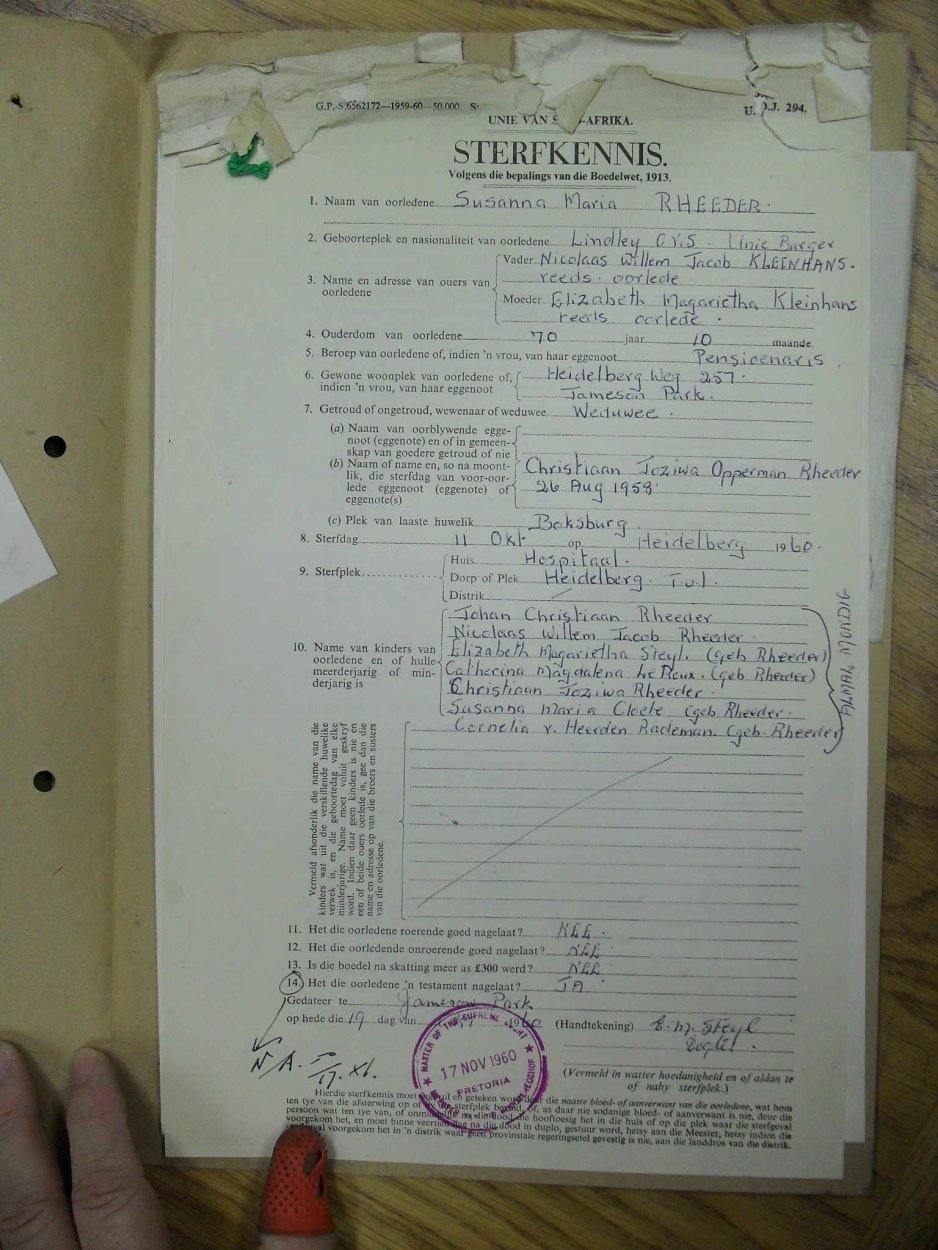 G.P.-S 6562172—1959-60—50,000. S
U. D.J. 294.
UNIE VAN S -AFRIKA.
STERFKENNIS.
Volgens die bepalings van die Boedelwet, 1913.
1. Naam van oorledene Susanna Maria RHEEDER.
2. Geboorteplek en nasionaliteit van oorledene Lindley O.V.S. Unie Burger
3. Name en adresse van ouers van oorledene
Vader Nicolaas Willem Jacob KLEINHANS.
reeds oorlede
Moeder Elizabeth Magarietha Kleinhans
reeds oorlede.
4. Ouderdom van oorledene 70 jaar 10 maande
5. Beroep van oorledene of, indien 'n vrou, van haar eggenoot Pensioenaris
6. Gewone woonplek van oorledene of, indien 'n vrou, van haar eggenoot
Heidelberg Weg 257.
Jameson Park.
7. Getroud of ongetroud, wewenaar of weduwee Weduwee.
(a) Naam van oorblywende egge-
noot (eggenote) en of in gemeen-
skap van goedere getroud of nie
(b) Naam of name en, so na moont-
lik, die sterfdag van voor-oor-
lede eggenoot (eggenote) of
eggenote(s)
Christiaan Joziwa Opperman Rheeder
26 Aug 1958.
(c) Plek van laaste huwelik Boksburg
8. Sterfdag 11 Okt op Heidelberg 1960.
9. Sterfplek
Huis Hospitaal.
Dorp of Plek Heidelberg. Tvl.
Distrik
10. Name van kinders van
oorledene en of hulle
meerderjarig of min-
derjarig is
Johan Christiaan Rheeder
Nicolaas Willem Jacob Rheeder
Elizabeth Magarietha Steyl. (geb Rheeder)
Catherina Magdalena Le Roux. (geb Rheeder)
Christiaan Joziwa Rheeder.
Susanna Maria Cloete (geb Rheeder.
Cornelia v. Heerden Rademan. (geb. Rheeder)
ALMAL MONDIG
Vermeld afsonderlik die name van die
kinders wat uit die verskillende huwelike
verwek is, en die geboortedag van elke
minderjarige. Name moet voluit geskryf
word. Indien daar geen kinders is nie en
een of beide ouers oorlede is, gee dan die
name en adresse op van die broers en susters
van die oorledene.
11. Het die oorledene roerende goed nagelaat? NEE.
12. Het die oorledende onroerende goed nagelaat? NEE
13. Is die boedel na skatting meer as £300 werd? NEE
14. Het die oorledene 'n testament nagelaat? JA
Gedateer te Jameson Park
op hede die 19 dag van 1960 (Handtekening) E. M. Steyl
Dogter.
(Vermeld in watter hoedanigheid en of aldan te
of naby sterfplek.)
N.A.
17. XI.
MASTER OF THE SUPREME COURT
17 NOV 1960
PRETORIA
Hierdie sterfkennis moet en geteken word deur die naaste bloed- of aanverwant van die oorledene, wat hom
ten tye van die afsterwing op of sterfplek bevind, of, as daar nie sodanige bloed- of aanverwant is nie, deur die
persoon wat ten tye van, of onmid na die dood die hooftoesig het in die huis of op die plek waar die sterfgeval
voorgekom het, en moet binne veertien dae na die dood in duplo, gestuur word, hetsy aan die Meester, hetsy indien die
voorgekom het in 'n distrik waar geen provinsiale regeringsetel gevestig is nie, aan die landdros van die distrik.